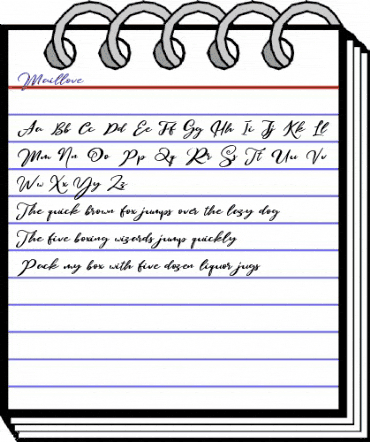 Maillove
Aa Bb Cc Dd Ee Ff Gg Hh Ii Jj Kk Ll
Mm Nn Oo Pp Qq Rr Ss Tt Uu Vv
Ww Xx Yy Zz
The quick brown fox jumps over the lazy dog
The five boxing wizards jump quickly
Pack my box with five dozen liquor jugs